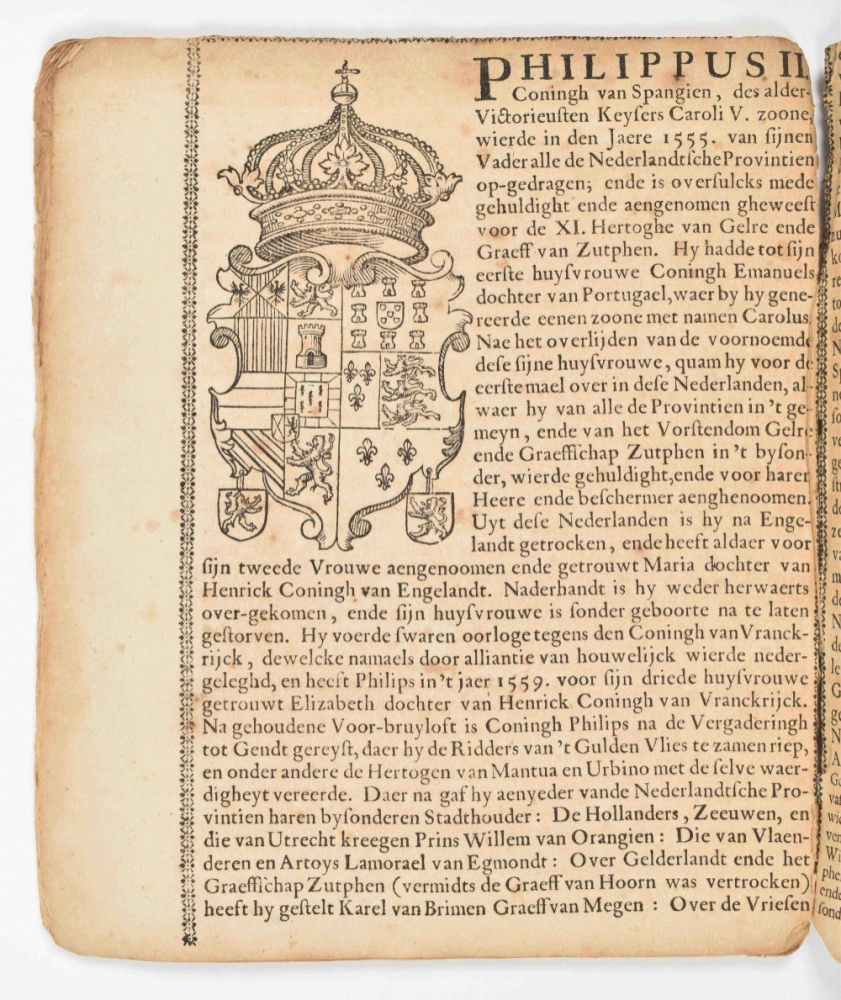 PHILIPPUS II.
Coningh van Spangien, des alder-
Victorieuſten Keyſers Caroli V. zoone,
wierde in den Jaere 1555. van ſijnen
Vader alle de Nederlandtſche Provintien
op-gedragen; ende is overſulcks mede
gehuldight ende aengenomen gheweeſt
voor de XI. Hertoghe van Gelre ende
Graeff van Zutphen. Hy hadde tot ſijn
eerſte huyſvrouwe Coningh Emanuels
dochter van Portugael, waer by hy gene-
reerde eenen zoone met namen Carolus.
Nae het overlijden van de voornoemde
deſe ſijne huyſvrouwe, quam hy voor de
eerſte mael over in deſe Nederlanden, al-
waer hy van alle de Provintien in 't ge-
meyn, ende van het Vorſtendom Gelre
ende Graeffſchap Zutphen in 't byſon-
der, wierde gehuldight, ende voor haren
Heere ende beſchermer aenghenoomen.
Uyt deſe Nederlanden is hy na Enge-
landt getrocken, ende heeft aldaer voor
ſijn tweede Vrouwe aengenoomen ende getrouwt Maria dochter van
Henrick Coningh van Engelandt. Naderhandt is hy weder herwaerts
over-gekomen, ende ſijn huyſvrouwe is ſonder geboorte na te laten
geſtorven. Hy voerde ſwaren oorloge tegens den Coningh van Vranck-
rijck, dewelcke namaels door alliantie van houwelijck wierde neder-
geleghd, en heeft Philips in 't jaer 1559. voor ſijn driede huyſvrouwe
getrouwt Elizabeth dochter van Henrick Coningh van Vranckrijck.
Na gehoudene Voor-bruyloft is Coningh Philips na de Vergaderingh
tot Gendt gereyſt, daer hy de Ridders van 't Gulden Vlies te zamen riep,
en onder andere de Hertogen van Mantua en Urbino met de ſelve waer-
digheyt vereerde. Daer na gaf hy aen yeder vande Nederlandtſche Pro-
vintien haren byſonderen Stadthouder: De Hollanders, Zeeuwen, en
die van Utrecht kreegen Prins Willem van Orangien: Die van Vlaen-
deren en Artoys Lamorael van Egmondt: Over Gelderlandt ende het
Graeffſchap Zutphen (vermidts de Graeff van Hoorn was vertrocken)
heeft hy geſtelt Karel van Brimen Graeff van Megen: Over de Vrieſen